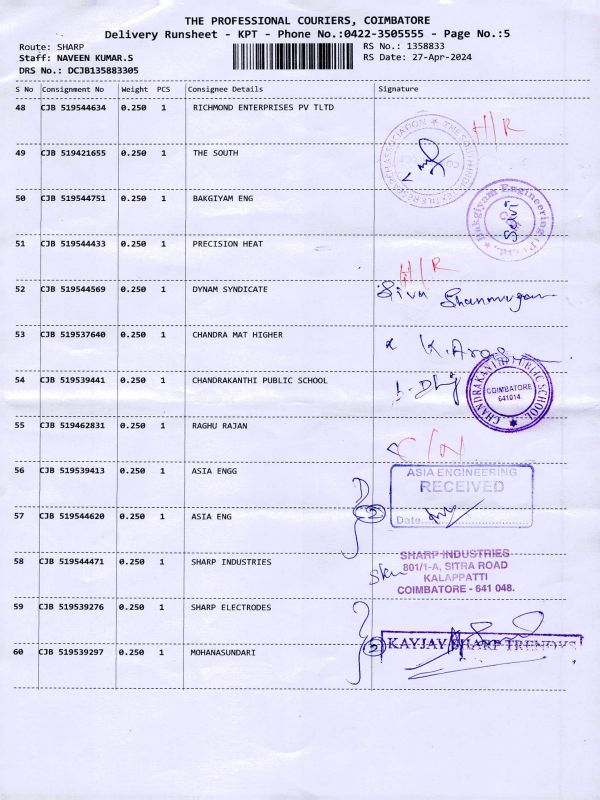 THE PROFESSIONAL COURIERS, COIMBATORE
Delivery Runsheet - KPT - Phone No.:0422-3505555 - Page No.:5
Route: SHARP
RS No.: 1358833
Staff: NAVEEN KUMAR.S
RS Date: 27-Apr-2024
DRS No.: DCJB135883305
S No Consignment No Weight PCS Consignee Details Signature
48 CJB 519544634 0.250 1 RICHMOND ENTERPRISES PV TLTD
H/R
49 CJB 519421655 0.250 1 THE SOUTH
50 CJB 519544751 0.250 1 BAKGIYAM ENG
Bakgiyam Engineering
51 CJB 519544433 0.250 1 PRECISION HEAT
H/R
52 CJB 519544569 0.250 1 DYNAM SYNDICATE
Siva Shanmugam
53 CJB 519537640 0.250 1 CHANDRA MAT HIGHER
54 CJB 519539441 0.250 1 CHANDRAKANTHI PUBLIC SCHOOL
CHANDRAKANTHI PUBLIC SCHOOL
COIMBATORE
641014
55 CJB 519462831 0.250 1 RAGHU RAJAN
C/N
56 CJB 519539413 0.250 1 ASIA ENGG
ASIA ENGINEERING
RECEIVED
57 CJB 519544620 0.250 1 ASIA ENG
2
Date
58 CJB 519544471 0.250 1 SHARP INDUSTRIES
SHARP INDUSTRIES
801/1-A, SITRA ROAD
KALAPPATTI
COIMBATORE - 641 048.
59 CJB 519539276 0.250 1 SHARP ELECTRODES
60 CJB 519539297 0.250 1 MOHANASUNDARI
2
KAYJAY SHARP TRENDYS